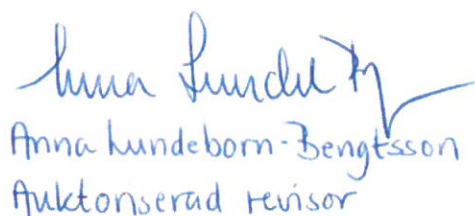 Anna Lundeborn-Bengtsson
Auktoriserad revisor